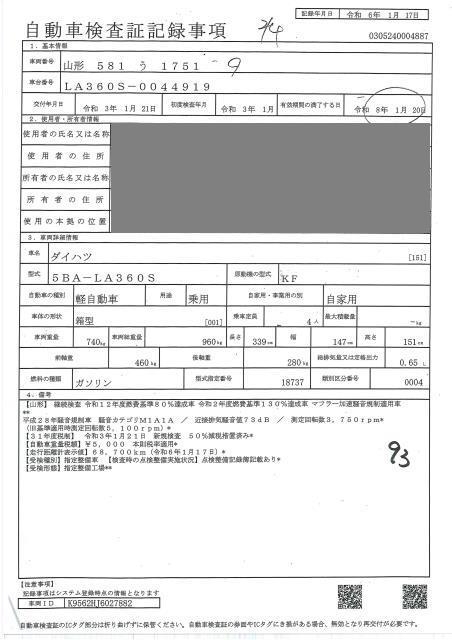 記録年月日 令和 6年 1月 17日
自動車検査証記録事項
0305240004887
1．基本情報
車両番号 山形 581 う 1751
9
車台番号 LA360S-0044919
交付年月日 令和 3年 1月 21日 初度検査年月 令和 3年 1月 有効期間の満了する日 令和 8年 1月 20日
2．使用者・所有者情報
使用者の氏名又は名称
使用者の住所
所有者の氏名又は名称
所有者の住所
使用の本拠の位置
3．車両詳細情報
車名 ダイハツ [151]
型式 5BA-LA360S 原動機の型式 KF
自動車の種別 軽自動車 用途 乗用 自家用・事業用の別 自家用
車体の形状 箱型 [001] 乗車定員 4人 最大積載量 -kg
車両重量 740kg 車両総重量 960kg 長さ 339cm 幅 147cm 高さ 151cm
前軸重 460kg 後軸重 280kg 総排気量又は定格出力 0.65 L
燃料の種類 ガソリン 型式指定番号 18737 類別区分番号 0004
4．備考
【山形】 継続検査 令和12年度燃費基準80％達成車 令和2年度燃費基準130％達成車 マフラー加速騒音規制適用車
**
平成28年騒音規制車 騒音カテゴリM1A1A ／ 近接排気騒音値73dB ／ 測定回転数3，750rpm*
(旧基準適用時測定回転数5，100rpm)*
【31年度税制】 令和3年1月21日 新規検査 50％減税措置済み*
【自動車重量税額】￥5，000 本則税率適用*
【走行距離計表示値】68，700km（令和6年1月17日）*
【受検種別】指定整備車 【検査時の点検整備実施状況】点検整備記録簿記載あり*
【受検形態】指定整備工場**
93
【注意事項】
記録事項はシステム登録時点の情報となります
車両ID K9562HJ6027882
自動車検査証のICタグ部分は折り曲げずに保管ください。自動車検査証の券面やICタグにき損がある場合、無効となり再交付が必要です。